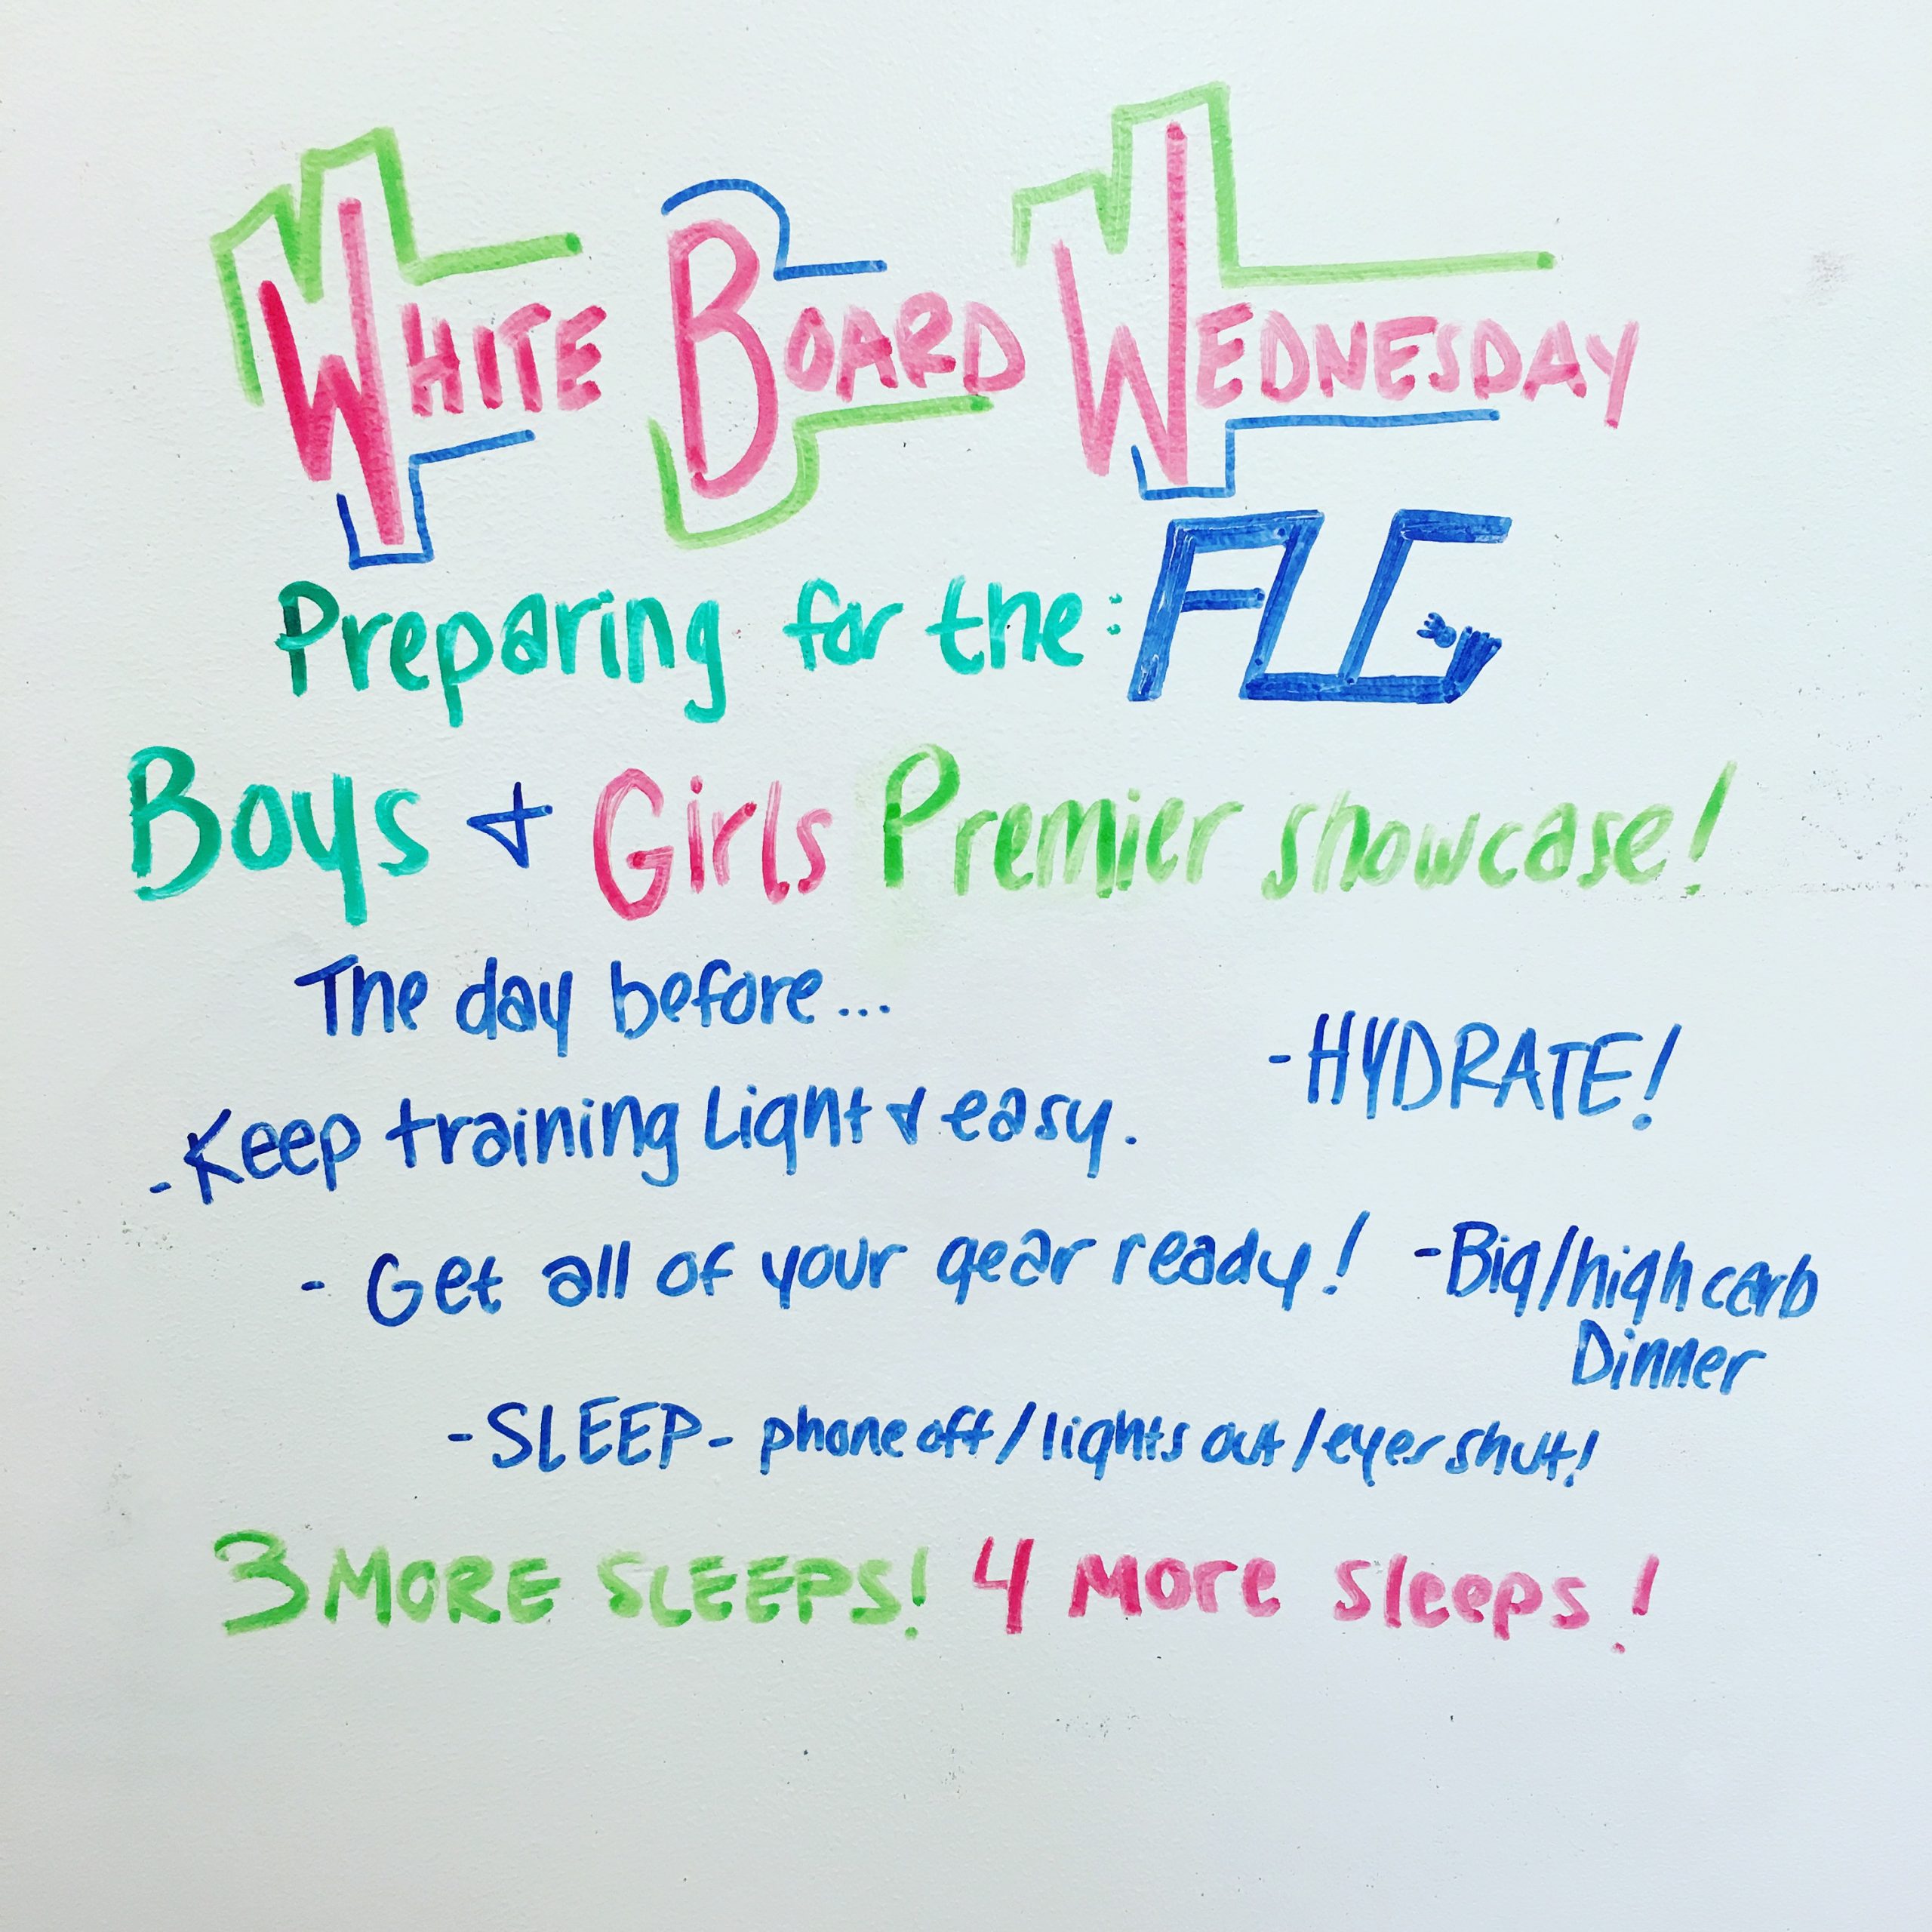 WHITE BOARD WEDNESDAY
Preparing for the: FLG
Boys & Girls Premier showcase!
The day before...
-HYDRATE!
-Keep training Light & easy.
- Get all of your gear ready!
-Big/high carb
Dinner
-SLEEP- phone off/lights out/eyes shut!
3 MORE SLEEPS! 4 More sleeps!